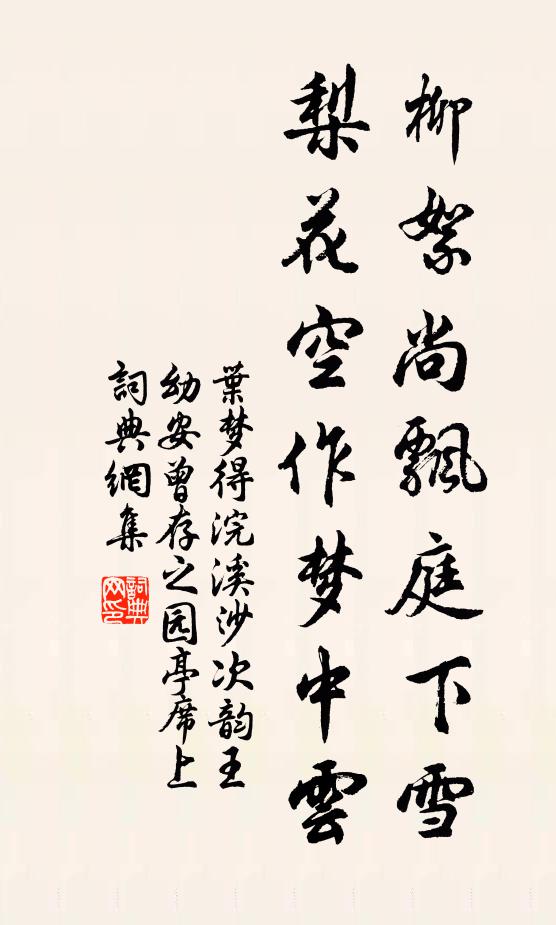 柳絮尚飄庭下雪
梨花空作梦中雲
葉梦得浣溪沙次韵王
幼安曾存之园亭席上
詞典網集
詞典網印